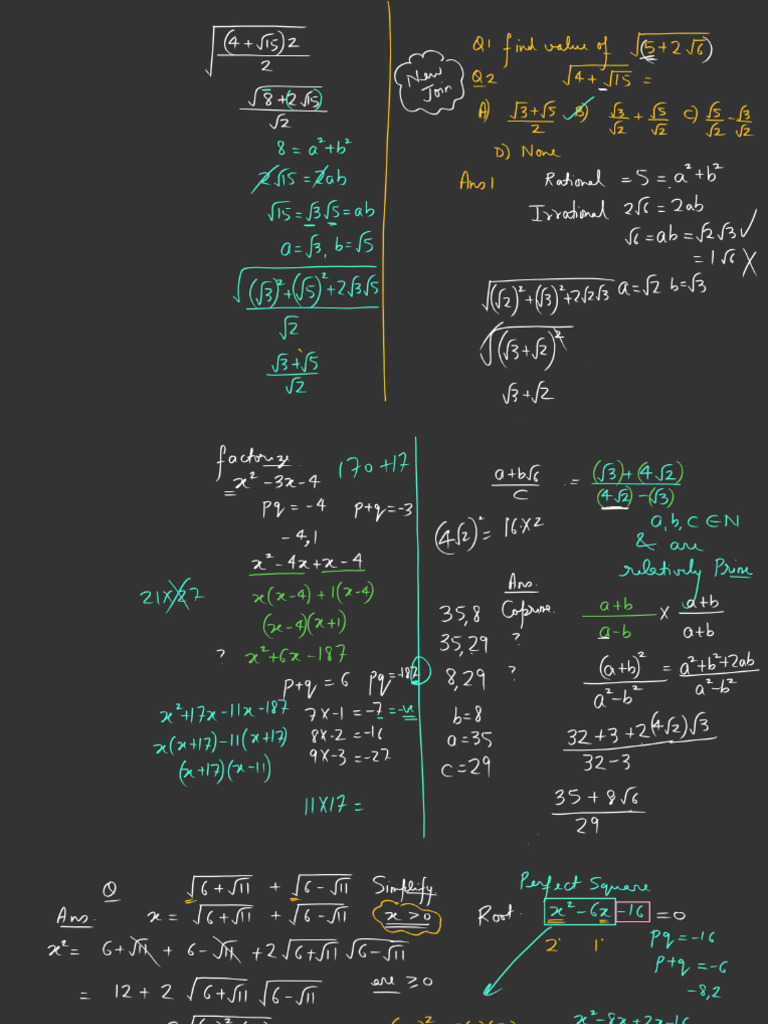 √((4+√15)2)/2
√(8+2√15)/√2
8 = a²+b²
2√15 = 2ab
√15 = √3√5 = ab
a=√3, b=√5
√((√3)²+(√5)²+2√3√5)/√2
(√3+√5)/√2
New Join
Q1 find value of √(5+2√6)
Q2 √(4+√15) =
A) (√3+√5)/2 B) √3/√2 + √5/√2 C) √5/√2 - √3/√2
D) None
Ans 1 Rational = 5 = a²+b²
Irrational 2√6 = 2ab
√6 = ab = √2√3 ✓
= 1√6 X
√((√2)²+(√3)²+2√2√3) a=√2 b=√3
√((√3+√2)²)
√3+√2
factorize 170+17
= x²-3x-4
pq = -4 p+q = -3
-4,1
x²-4x+x-4
x(x-4)+1(x-4)
(x-4)(x+1)
? x²+6x-187
p+q = 6 pq = -187
7×-1 = -7 = -ve
8×-2 = -16
9×-3 = -27
x²+17x-11x-187
x(x+17)-11(x+17)
(x+17)(x-11)
11×17 =
(a+b√6)/c = ((√3)+(4√2))/((4√2)-(√3))
(4√2)² = 16×2
a,b,c ∈ N
& are
relatively Prime
Ans.
35,8 Coprime
35,29 ?
8,29 ?
b=8
a=35
c=29
(a+b)/(a-b) × (a+b)/(a+b)
(a+b)²/(a²-b²) = (a²+b²+2ab)/(a²-b²)
(32+3+2(4√2)√3)/(32-3)
(35+8√6)/29
Q √(6+√11) + √(6-√11) Simplify
Ans. x = √(6+√11) + √(6-√11) x>0
x² = 6+√11 + 6-√11 + 2√(6+√11) √(6-√11)
= 12+2 √(6+√11) √(6-√11) are ≥0
Perfect Square
Root. x²-6x-16 = 0
2. 1.
pq = -16
p+q = -6
-8,2
x²-8x+2x-16